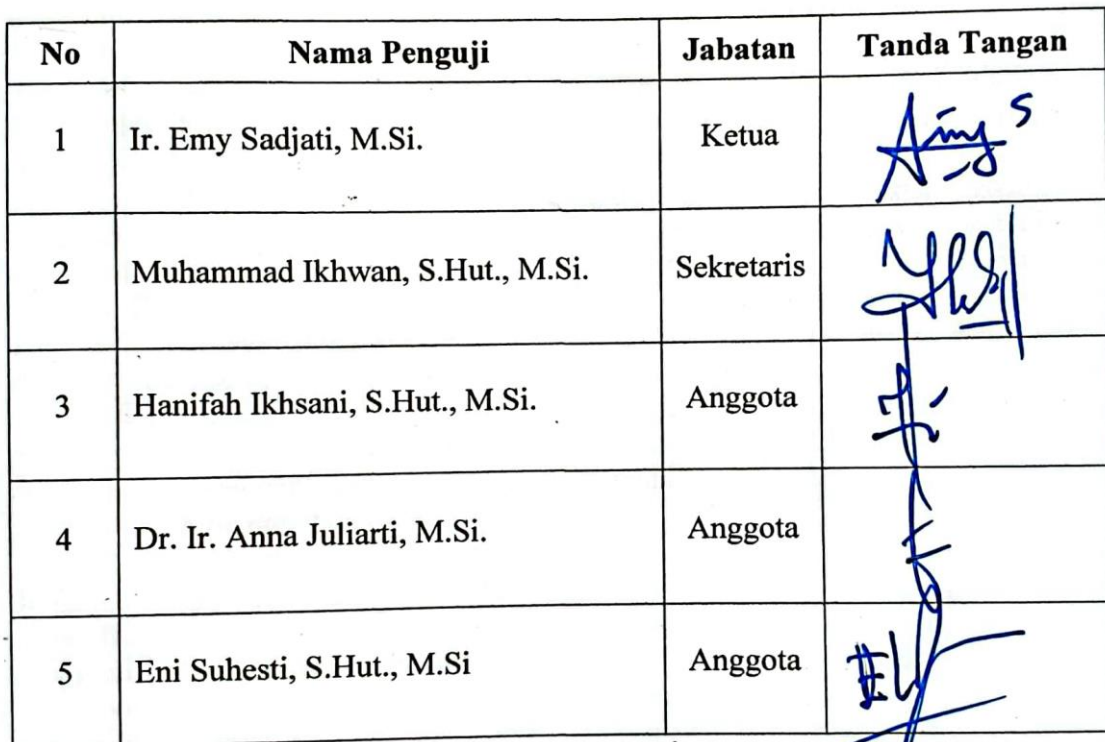 No Nama Penguji Jabatan Tanda Tangan
1 Ir. Emy Sadjati, M.Si. Ketua
2 Muhammad Ikhwan, S.Hut., M.Si. Sekretaris
3 Hanifah Ikhsani, S.Hut., M.Si. Anggota
4 Dr. Ir. Anna Juliarti, M.Si. Anggota
5 Eni Suhesti, S.Hut., M.Si Anggota